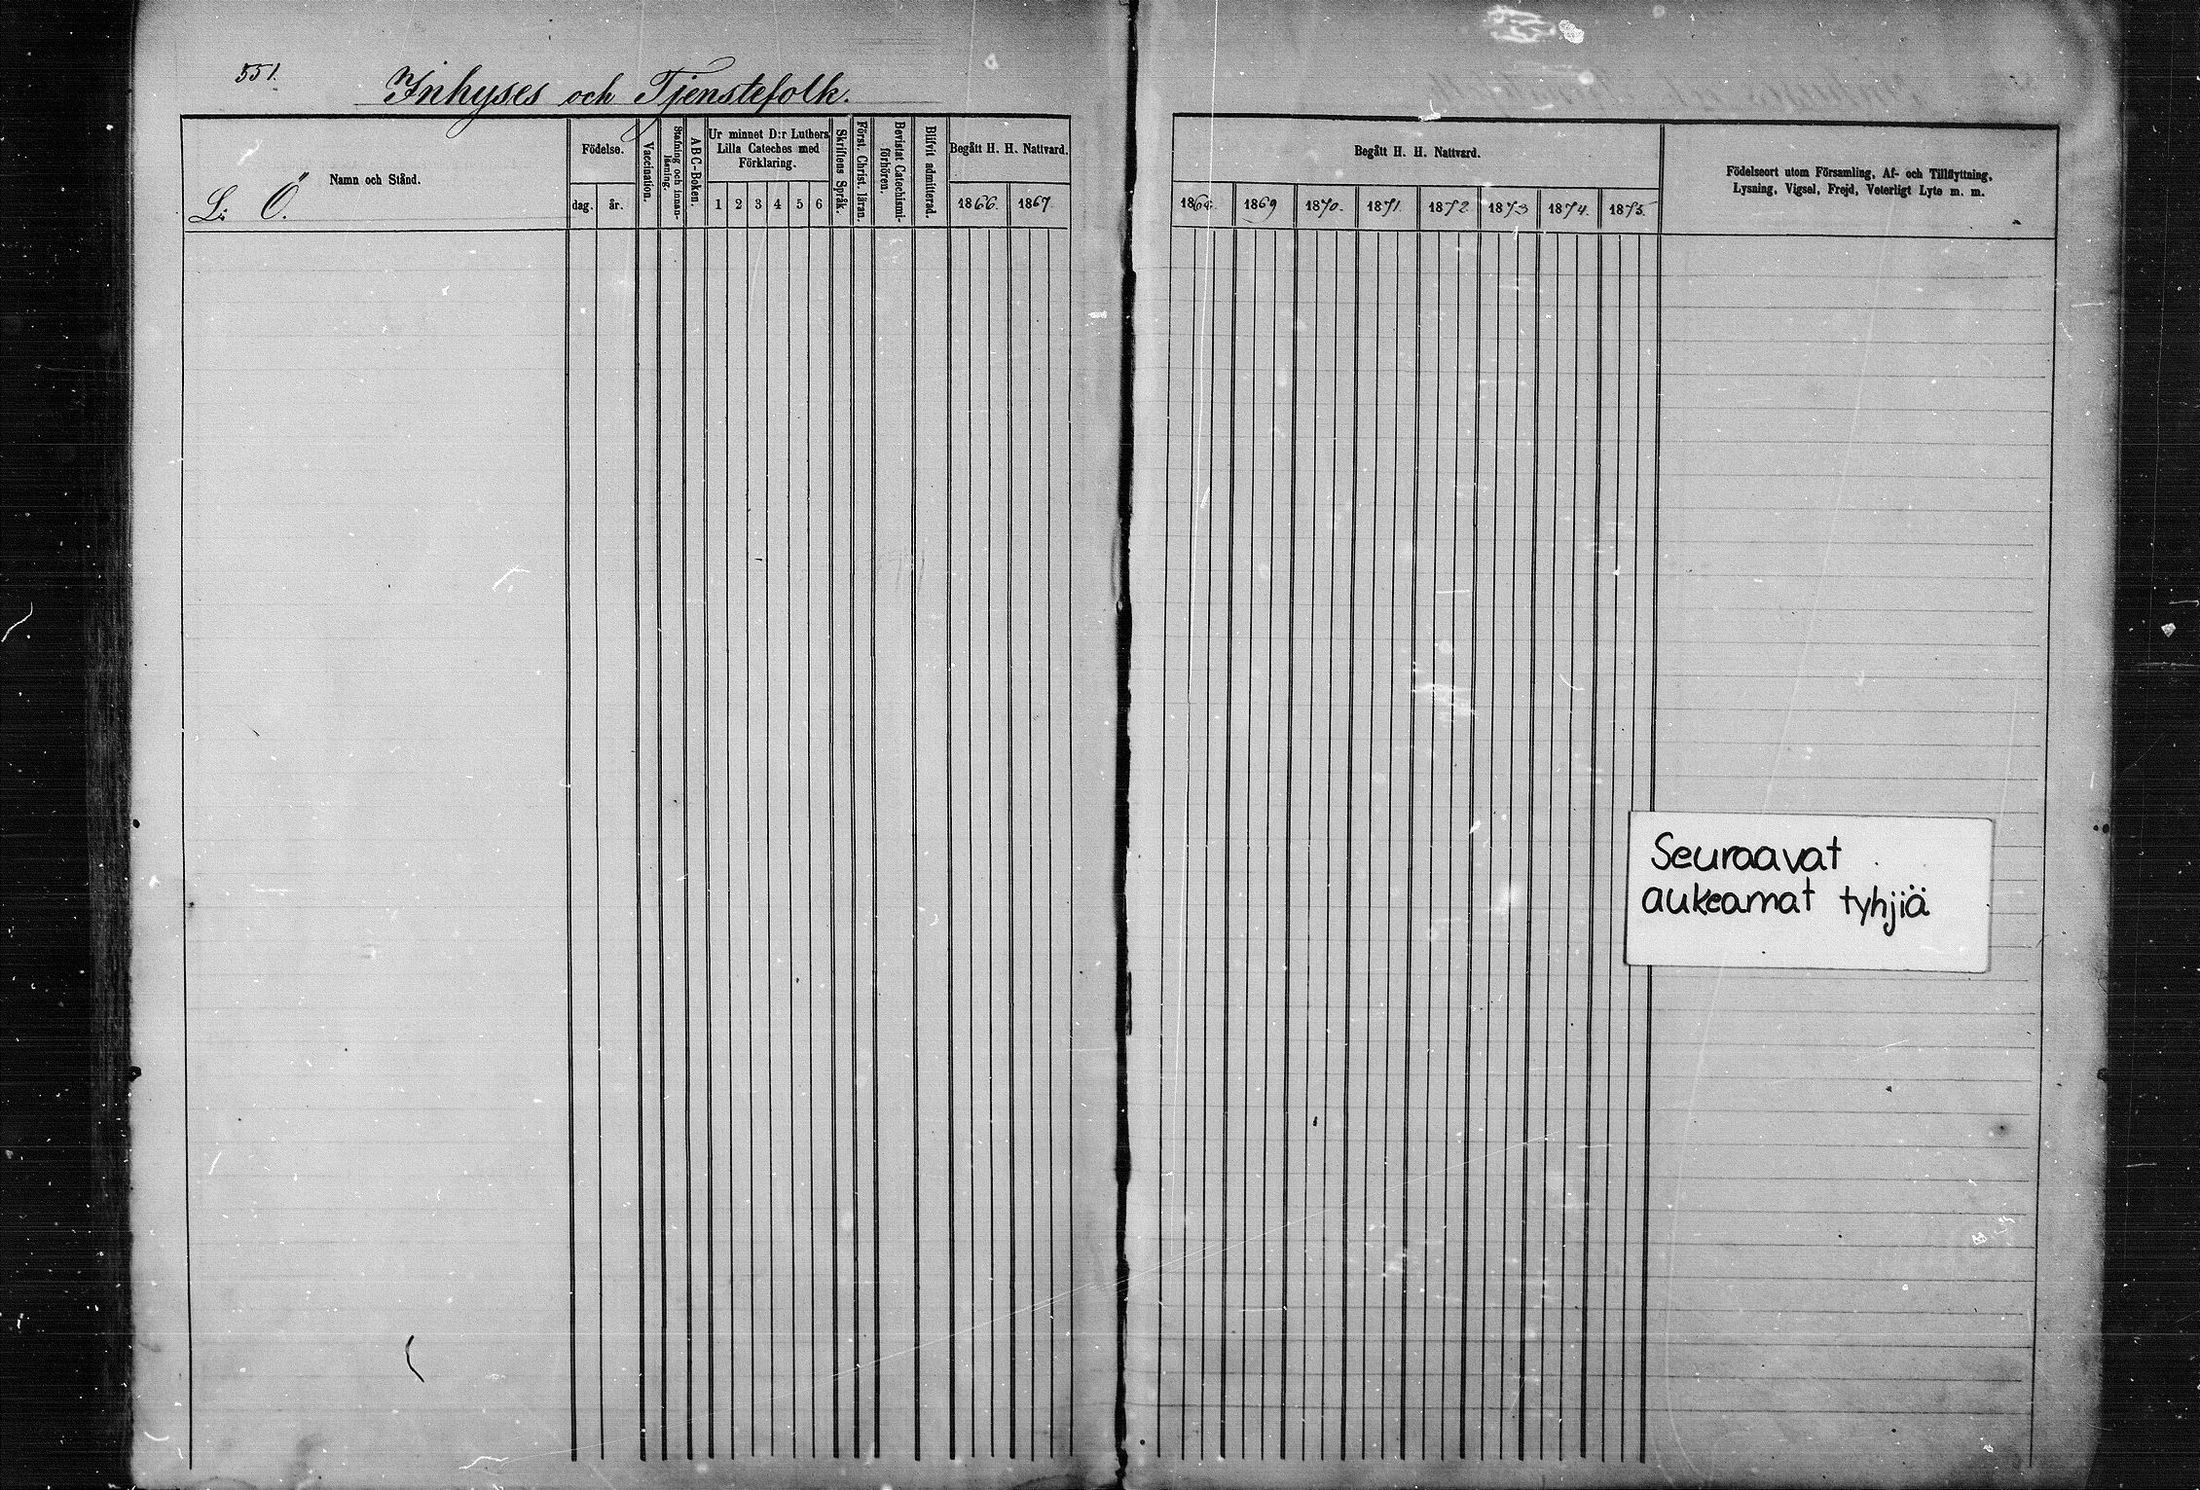 551.
Inhyses och Tjenstefolk.
Namn och Stånd.
L: Ö.
Födelse.
dag. år.
Vaccination.
Stafning och innan-
läsning.
ABC-Boken.
Ur minnet D:r Luthers
Lilla Cateches med
Förklaring.
1 2 3 4 5 6
Skriftens Språk.
Först. Christ. läran.
Bevistat Catechismi-
förhören.
Blifvit admitterad.
Begått H. H. Nattvard.
1866. 1867.
Begått H. H. Nattvard.
1868. 1869 1870. 1871. 1872. 1873 1874. 1875.
Födelseort utom Församling, Af- och Tillflyttning,
Lysning, Vigsel, Frejd, Veterligt Lyte m. m.
Seuraavat
aukeamat tyhjiä